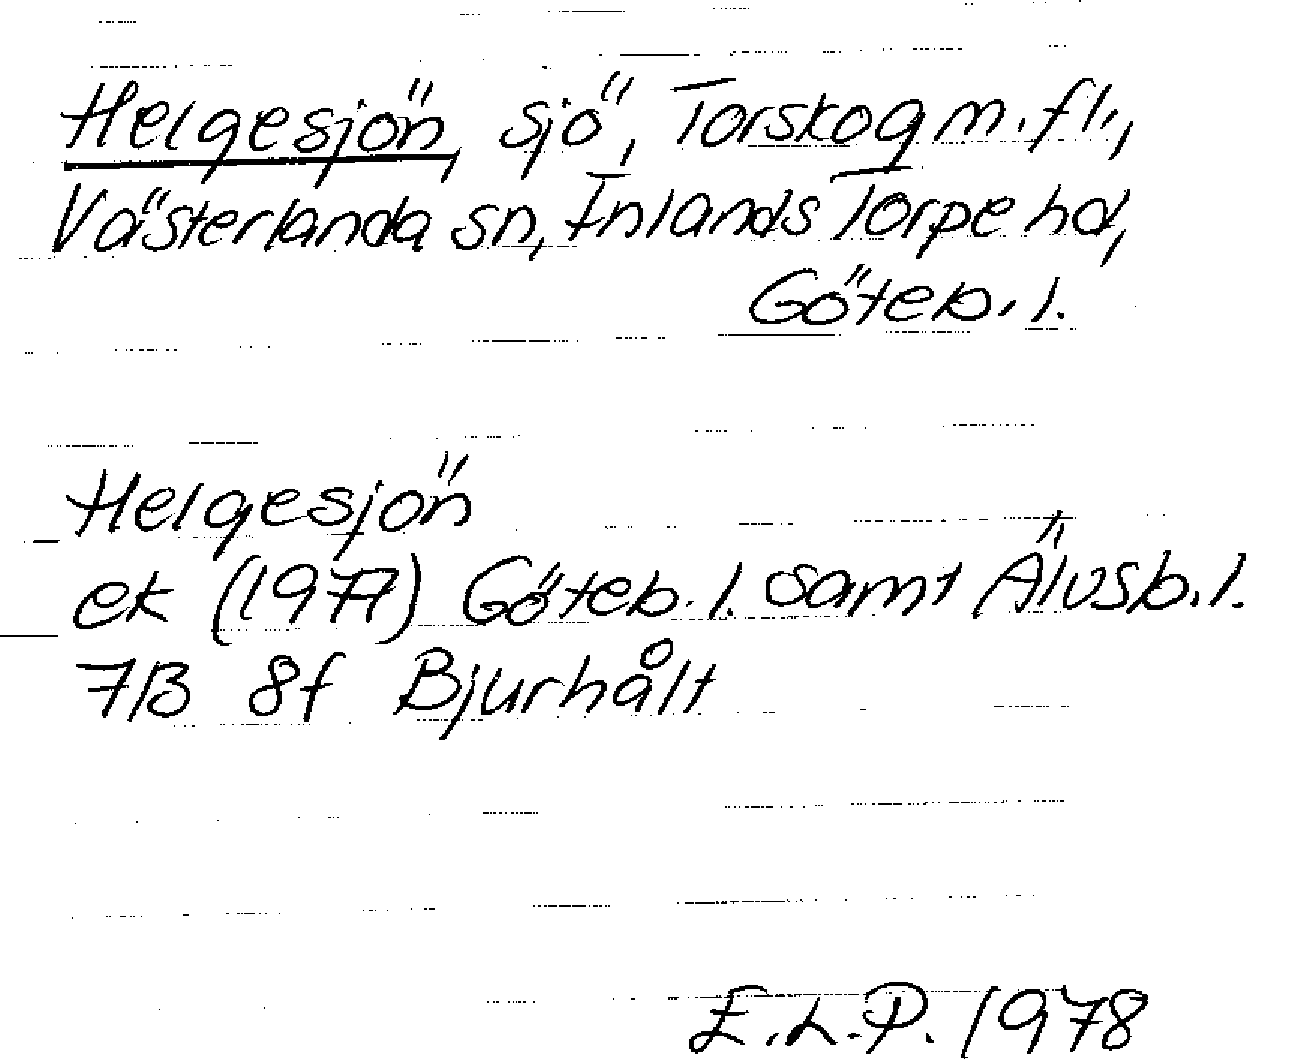 Helgesjön, sjö, Torskog m.fl.,
Västerlanda sn, Inlands Torpe hd,
Göteb. l.
Helgesjön
ek (1977) Göteb. l. samt Älvsb. l.
7B 8f Bjurhålt
E.L.P. 1978